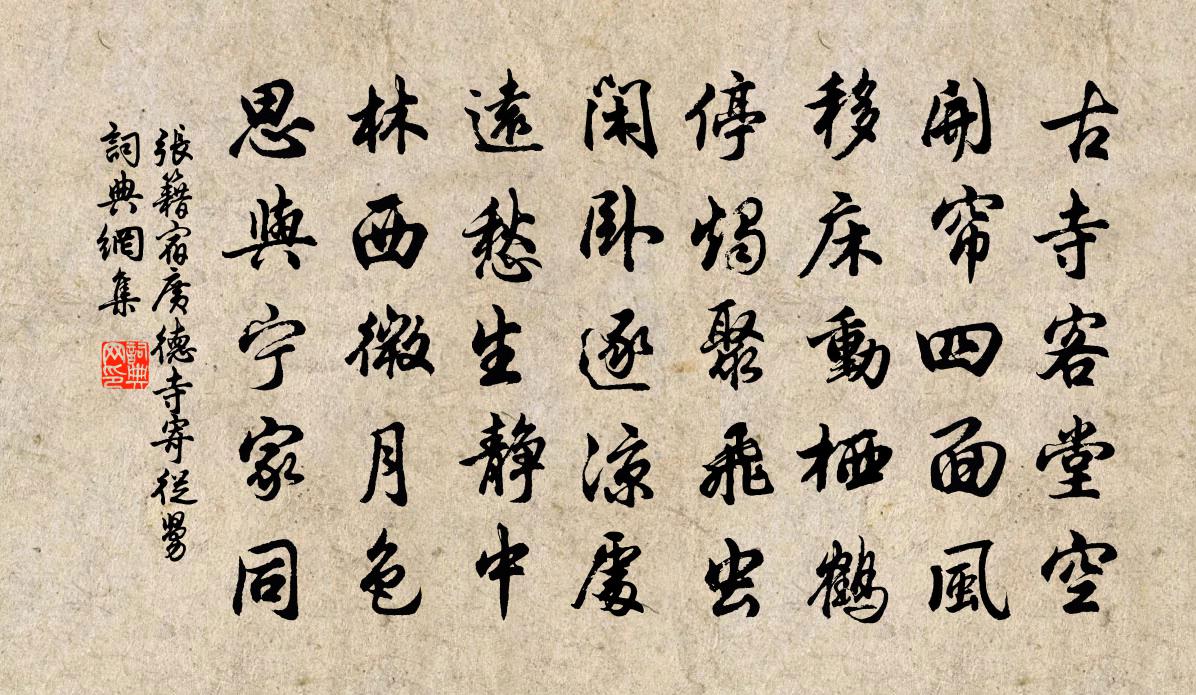 古寺客堂空
開帘四面風
移床動栖鶴
停燭聚飛虫
閑卧逐涼處
遠愁生静中
林西微月色
思與宁家同
張籍宿廣德寺寄從舅
詞典網集
詞典网印